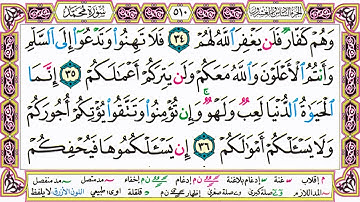 سورة محمد ٥١٠ الجزء السادس والعشرون
وَهُمْ كُفَّارٌ فَلَن يَغْفِرَ ٱللَّهُ لَهُمْ ٣٤ فَلَا تَهِنُوا۟ وَتَدْعُوٓا۟ إِلَى ٱلسَّلْمِ
وَأَنتُمُ ٱلْأَعْلَوْنَ وَٱللَّهُ مَعَكُمْ وَلَن يَتِرَكُمْ أَعْمَٰلَكُمْ ٣٥ إِنَّمَا
ٱلْحَيَوٰةُ ٱلدُّنْيَا لَعِبٌ وَلَهْوٌ ۚ وَإِن تُؤْمِنُوا۟ وَتَتَّقُوا۟ يُؤْتِكُمْ أُجُورَكُمْ
وَلَا يَسْـَٔلْكُمْ أَمْوَٰلَكُمْ ٣٦ إِن يَسْـَٔلْكُمُوهَا فَيُحْفِكُمْ